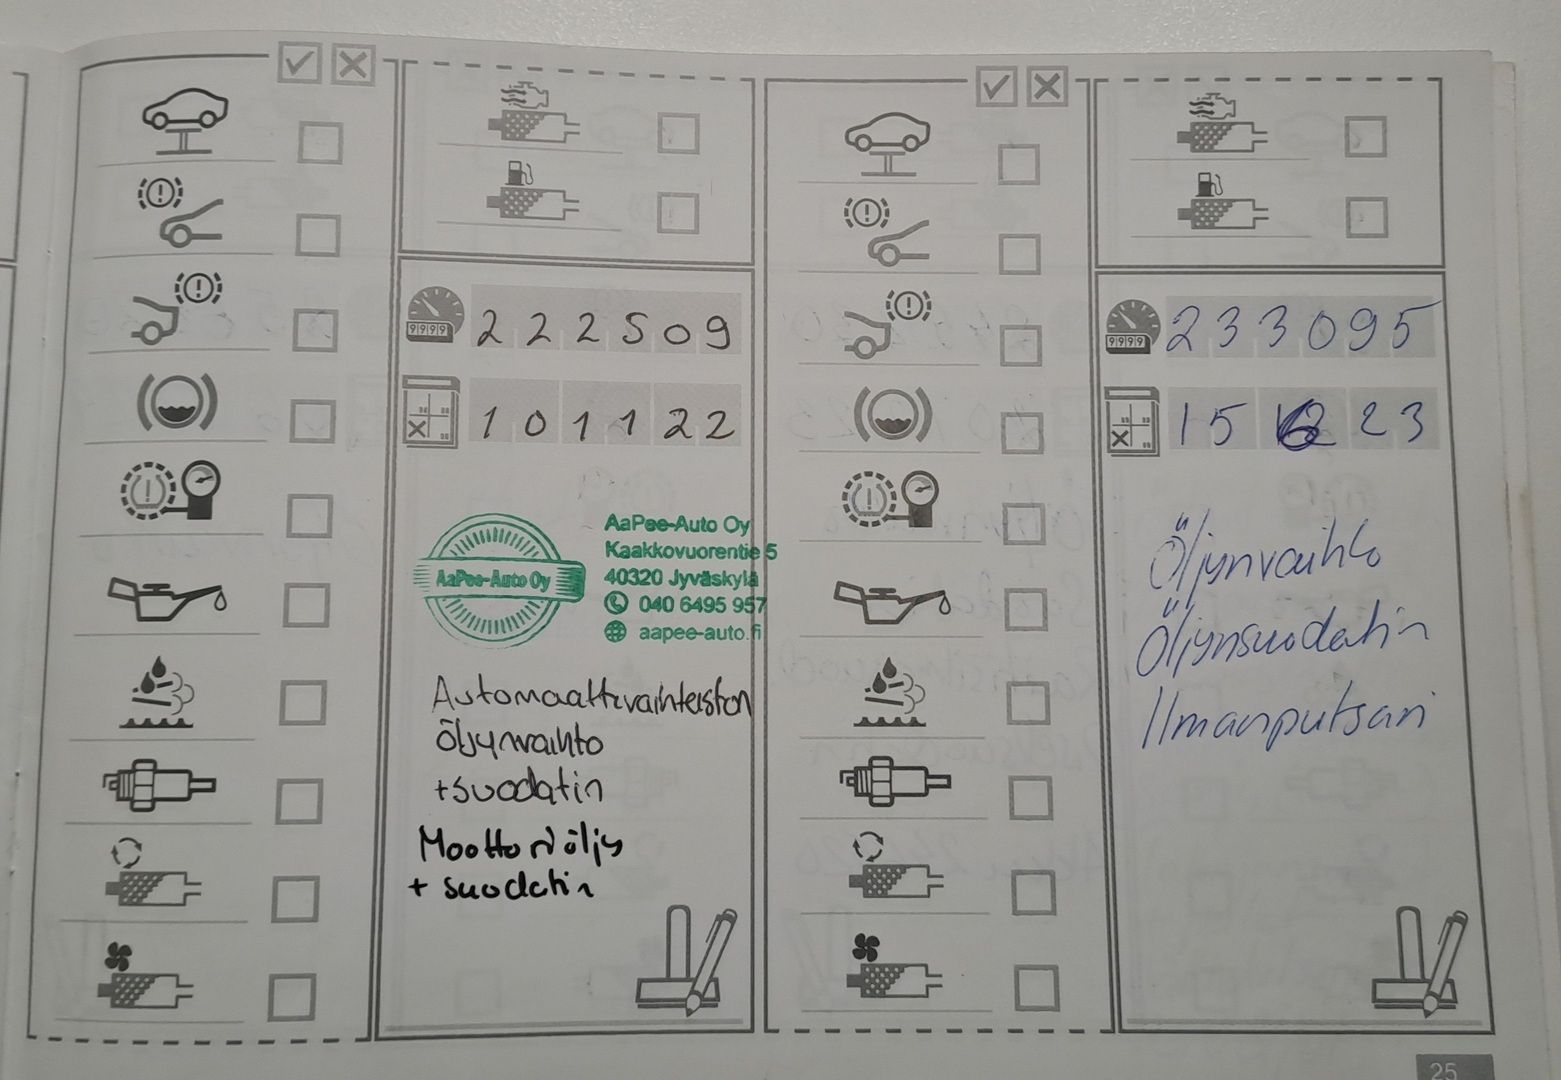 9999
222509
101122
AaPee-Auto Oy
AaPee-Auto Oy
Kaakkovuorentie 5
40320 Jyväskylä
040 6495 957
aapee-auto.fi
Automaattivaihteiston
Öljynvaihto
+suodatin
Moottoriöljy
+ suodatin
9999
233095
15 23
Öljynvaihto
Öljynsuodatin
Ilmanputsari
25